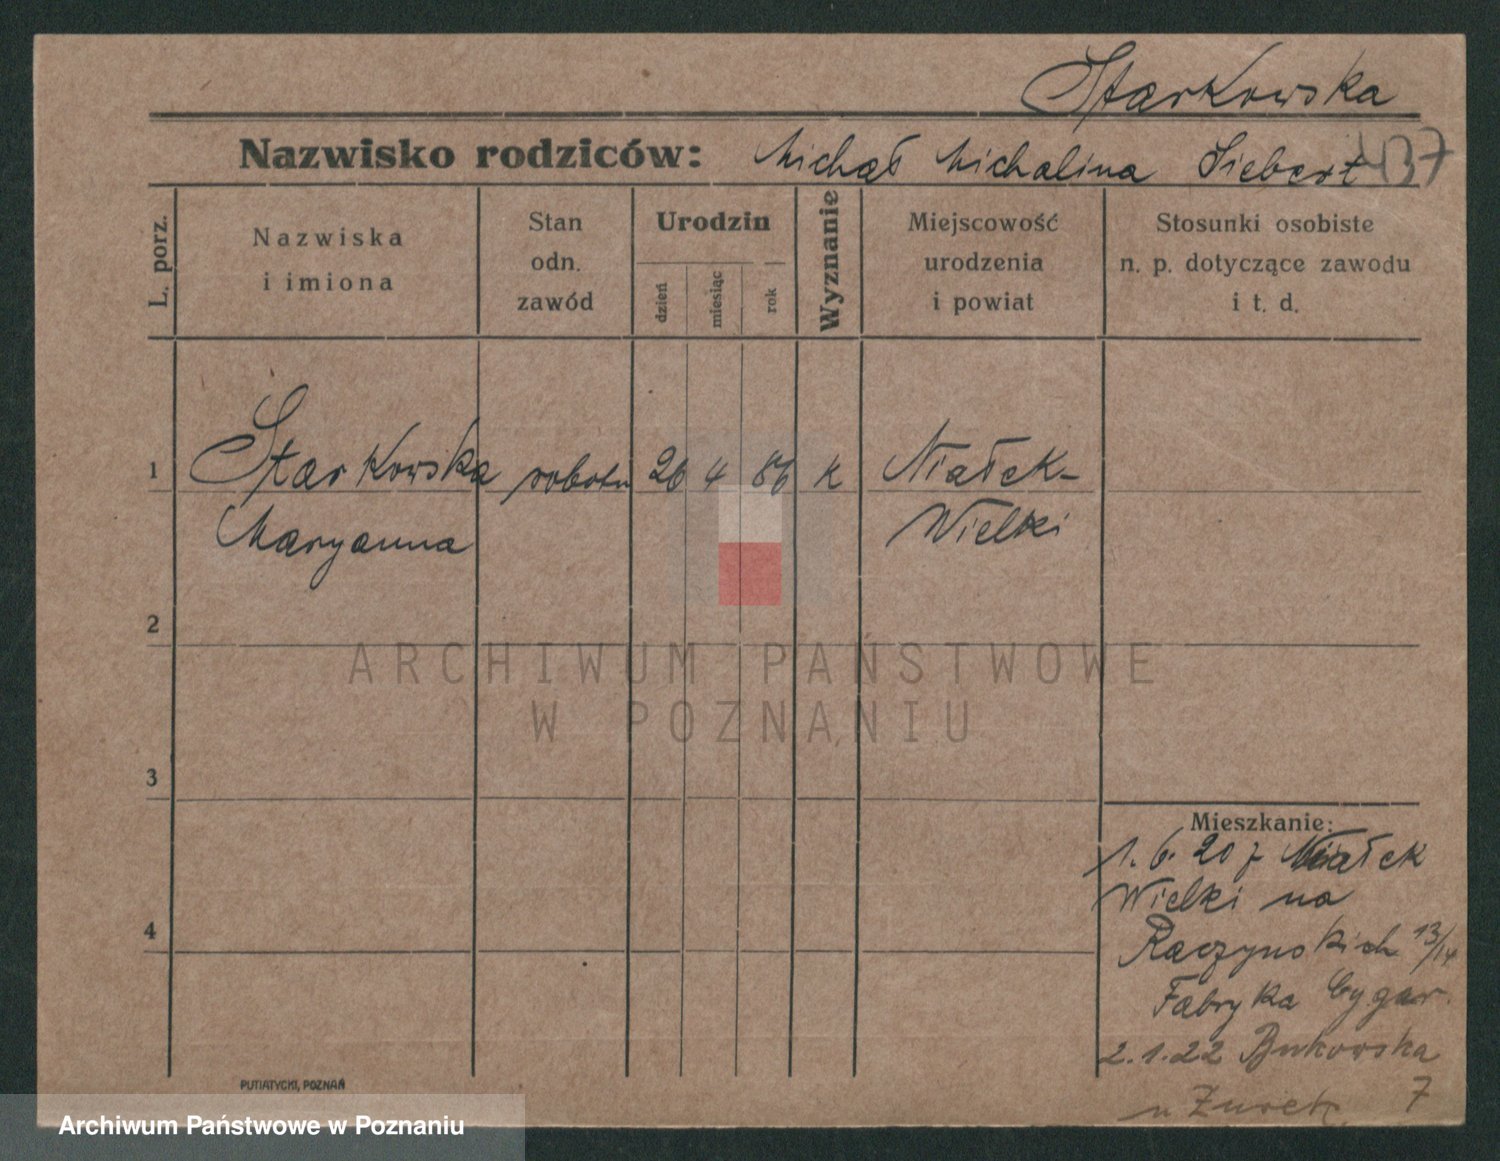 Starkowska
Nazwisko rodziców: Michał Michalina Siebert 437
L. porz.
Nazwiska
i imiona
Stan
odn.
zawód
Urodzin
dzień
miesiąc
rok
Wyznanie
Miejscowość
urodzenia
i powiat
Stosunki osobiste
n. p. dotyczące zawodu
i t. d.
1 Starkowska robotn 26 4 86 k Niałek-
Maryanna Wielki
2
ARCHIWUM PAŃSTWOWE
W POZNANIU
3
Mieszkanie:
1. 6. 20 z Niałek
Wielki na
4
Raczynskich 13/14
Fabryka Cygar.
2.1.22 Bukowska
7
u Zurek
PUTIATYCKI, POZNAŃ
Archiwum Państwowe w Poznaniu